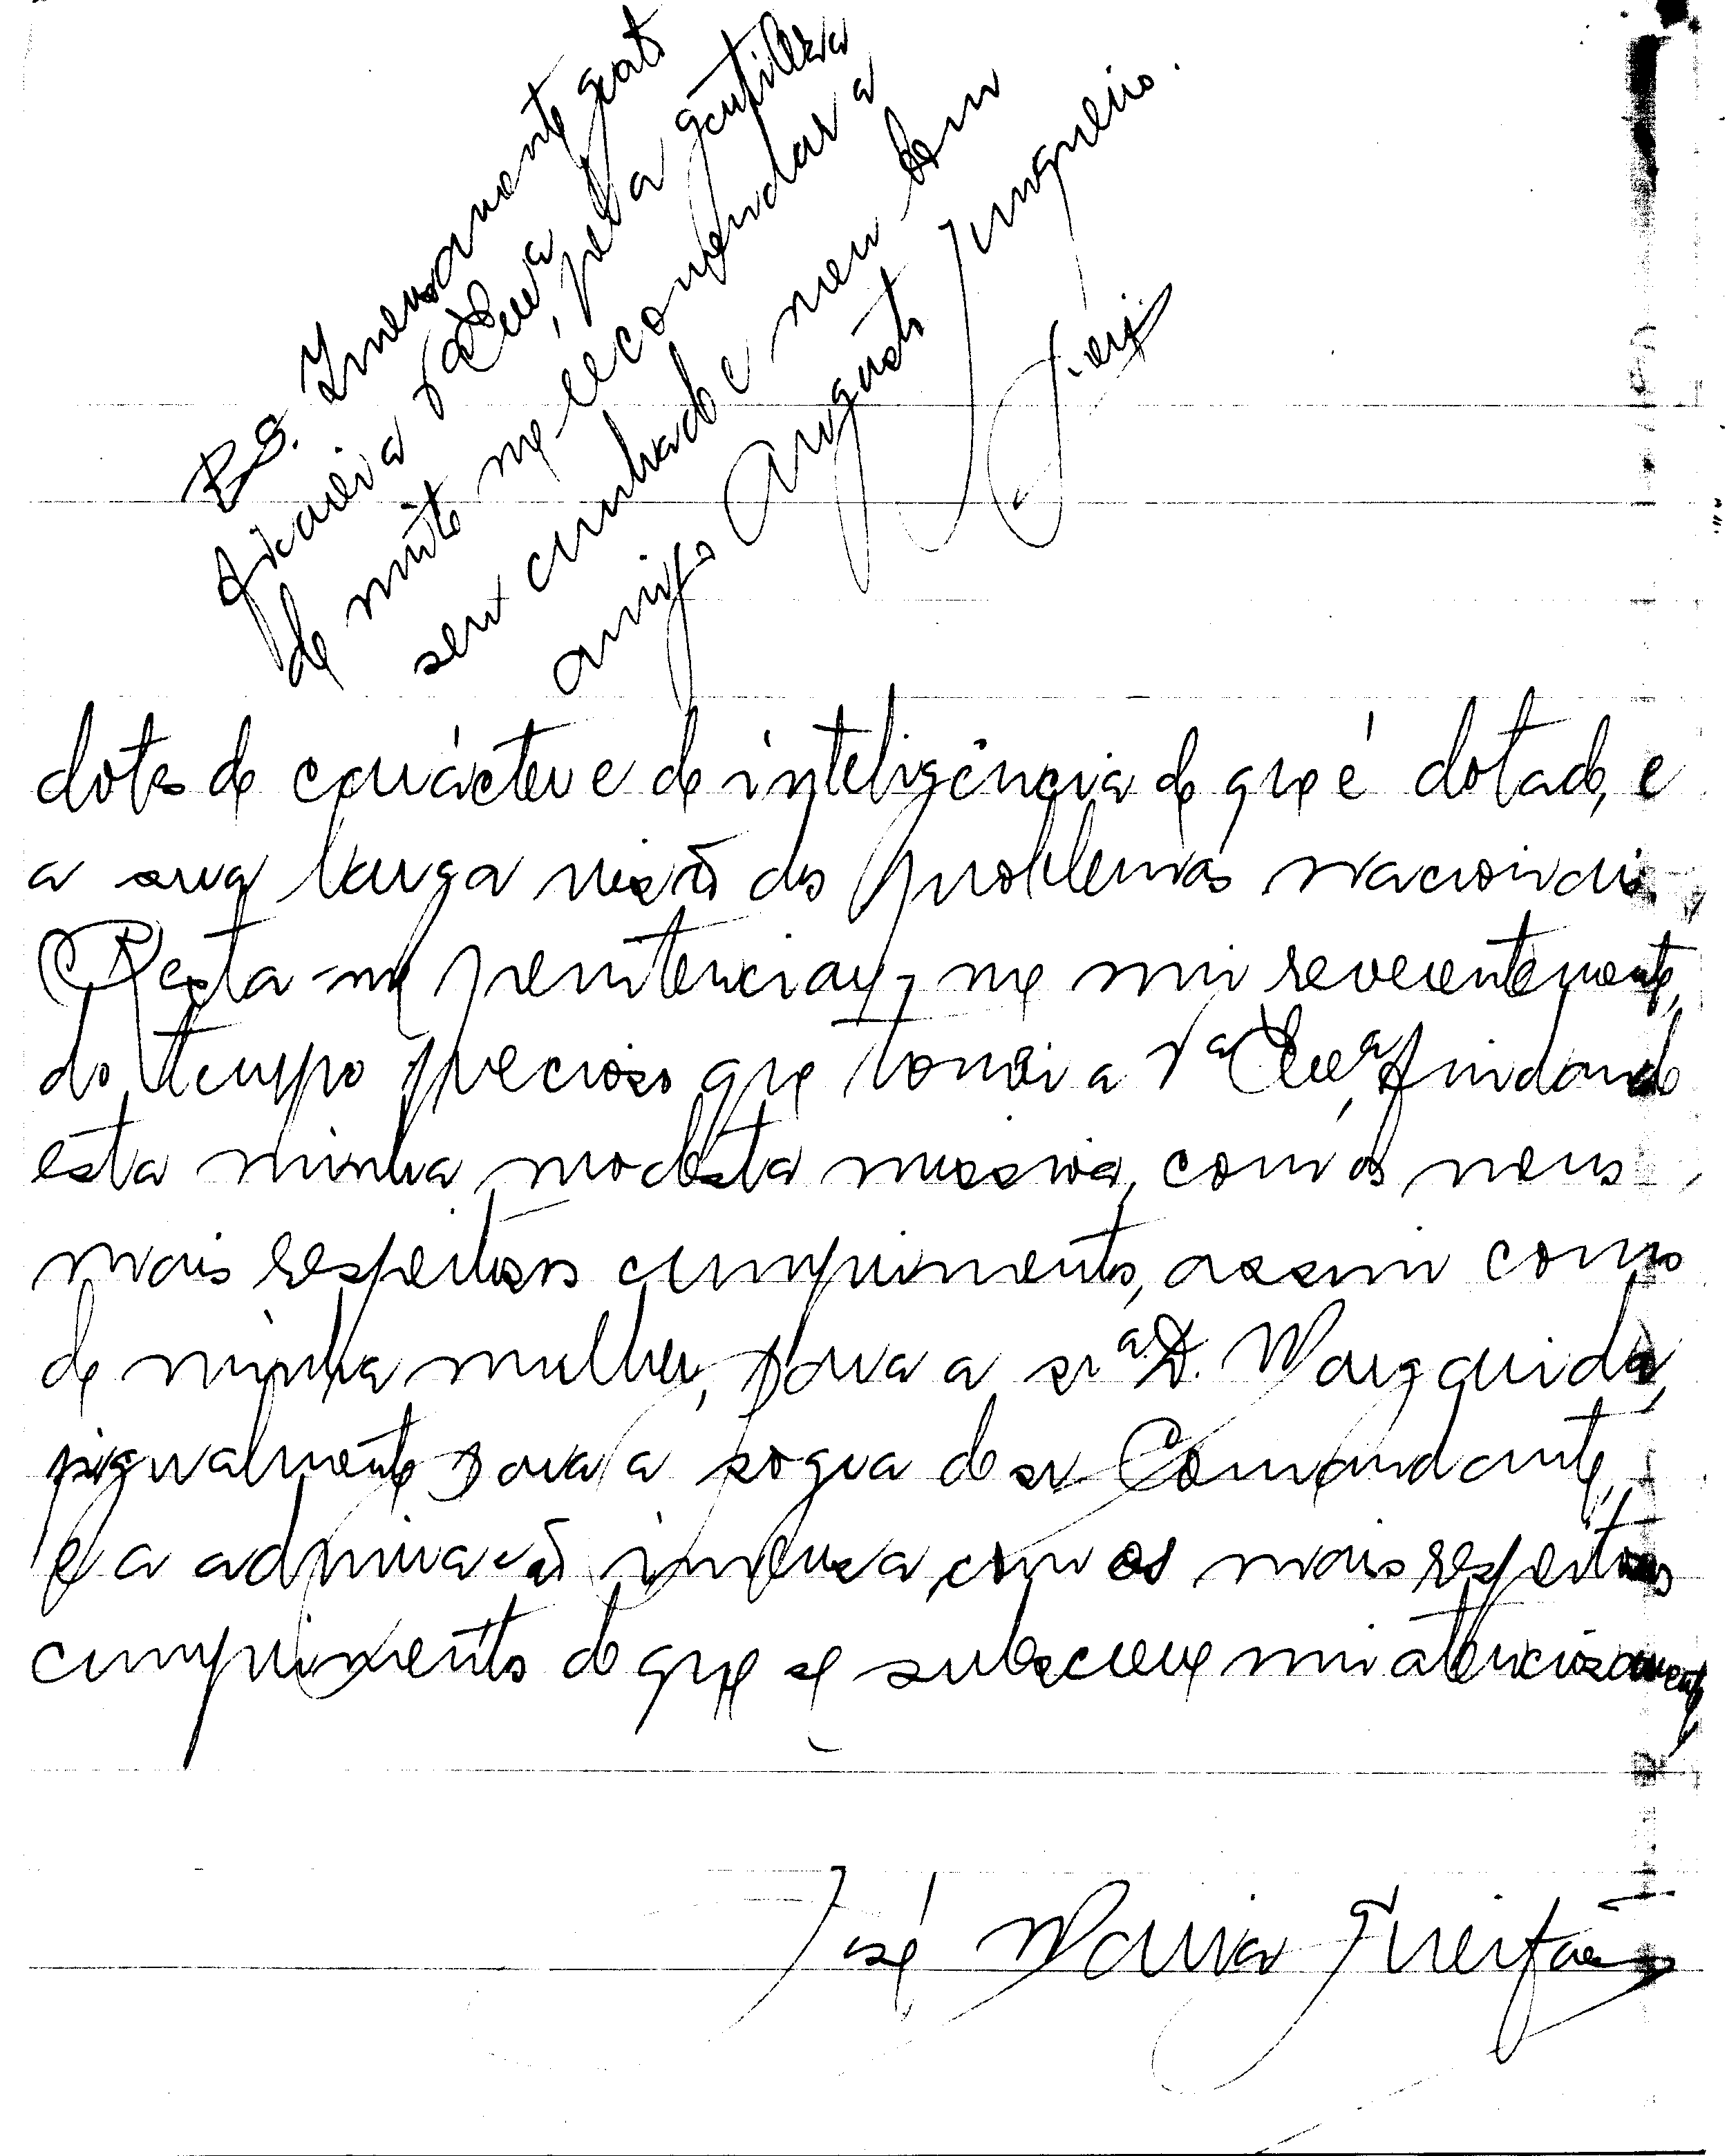 P.S. Imensamente grato
ficaria a V. Exª, pela gentileza
de muito me recomendar a
seu cunhado e meu bom
amigo Augusto Junqueiro.
dotes de carácter e de inteligência de que é dotado, e
a sua larga visão dos problemas nacionais.
Resta-me penitenciar-me mui reverentemente,
do tempo precioso que tomei a Vª Exª, findando
esta minha modesta missiva, com os meus
mais respeitosos cumprimentos, assim como
de minha mulher, para a srª D. Margarida,
igualmente para a sogra do sr. Comandante,
e a admiração imensa, com os mais respeitosos
cumprimentos do que se subscreve mui atenciosamente
José Maria Freitas